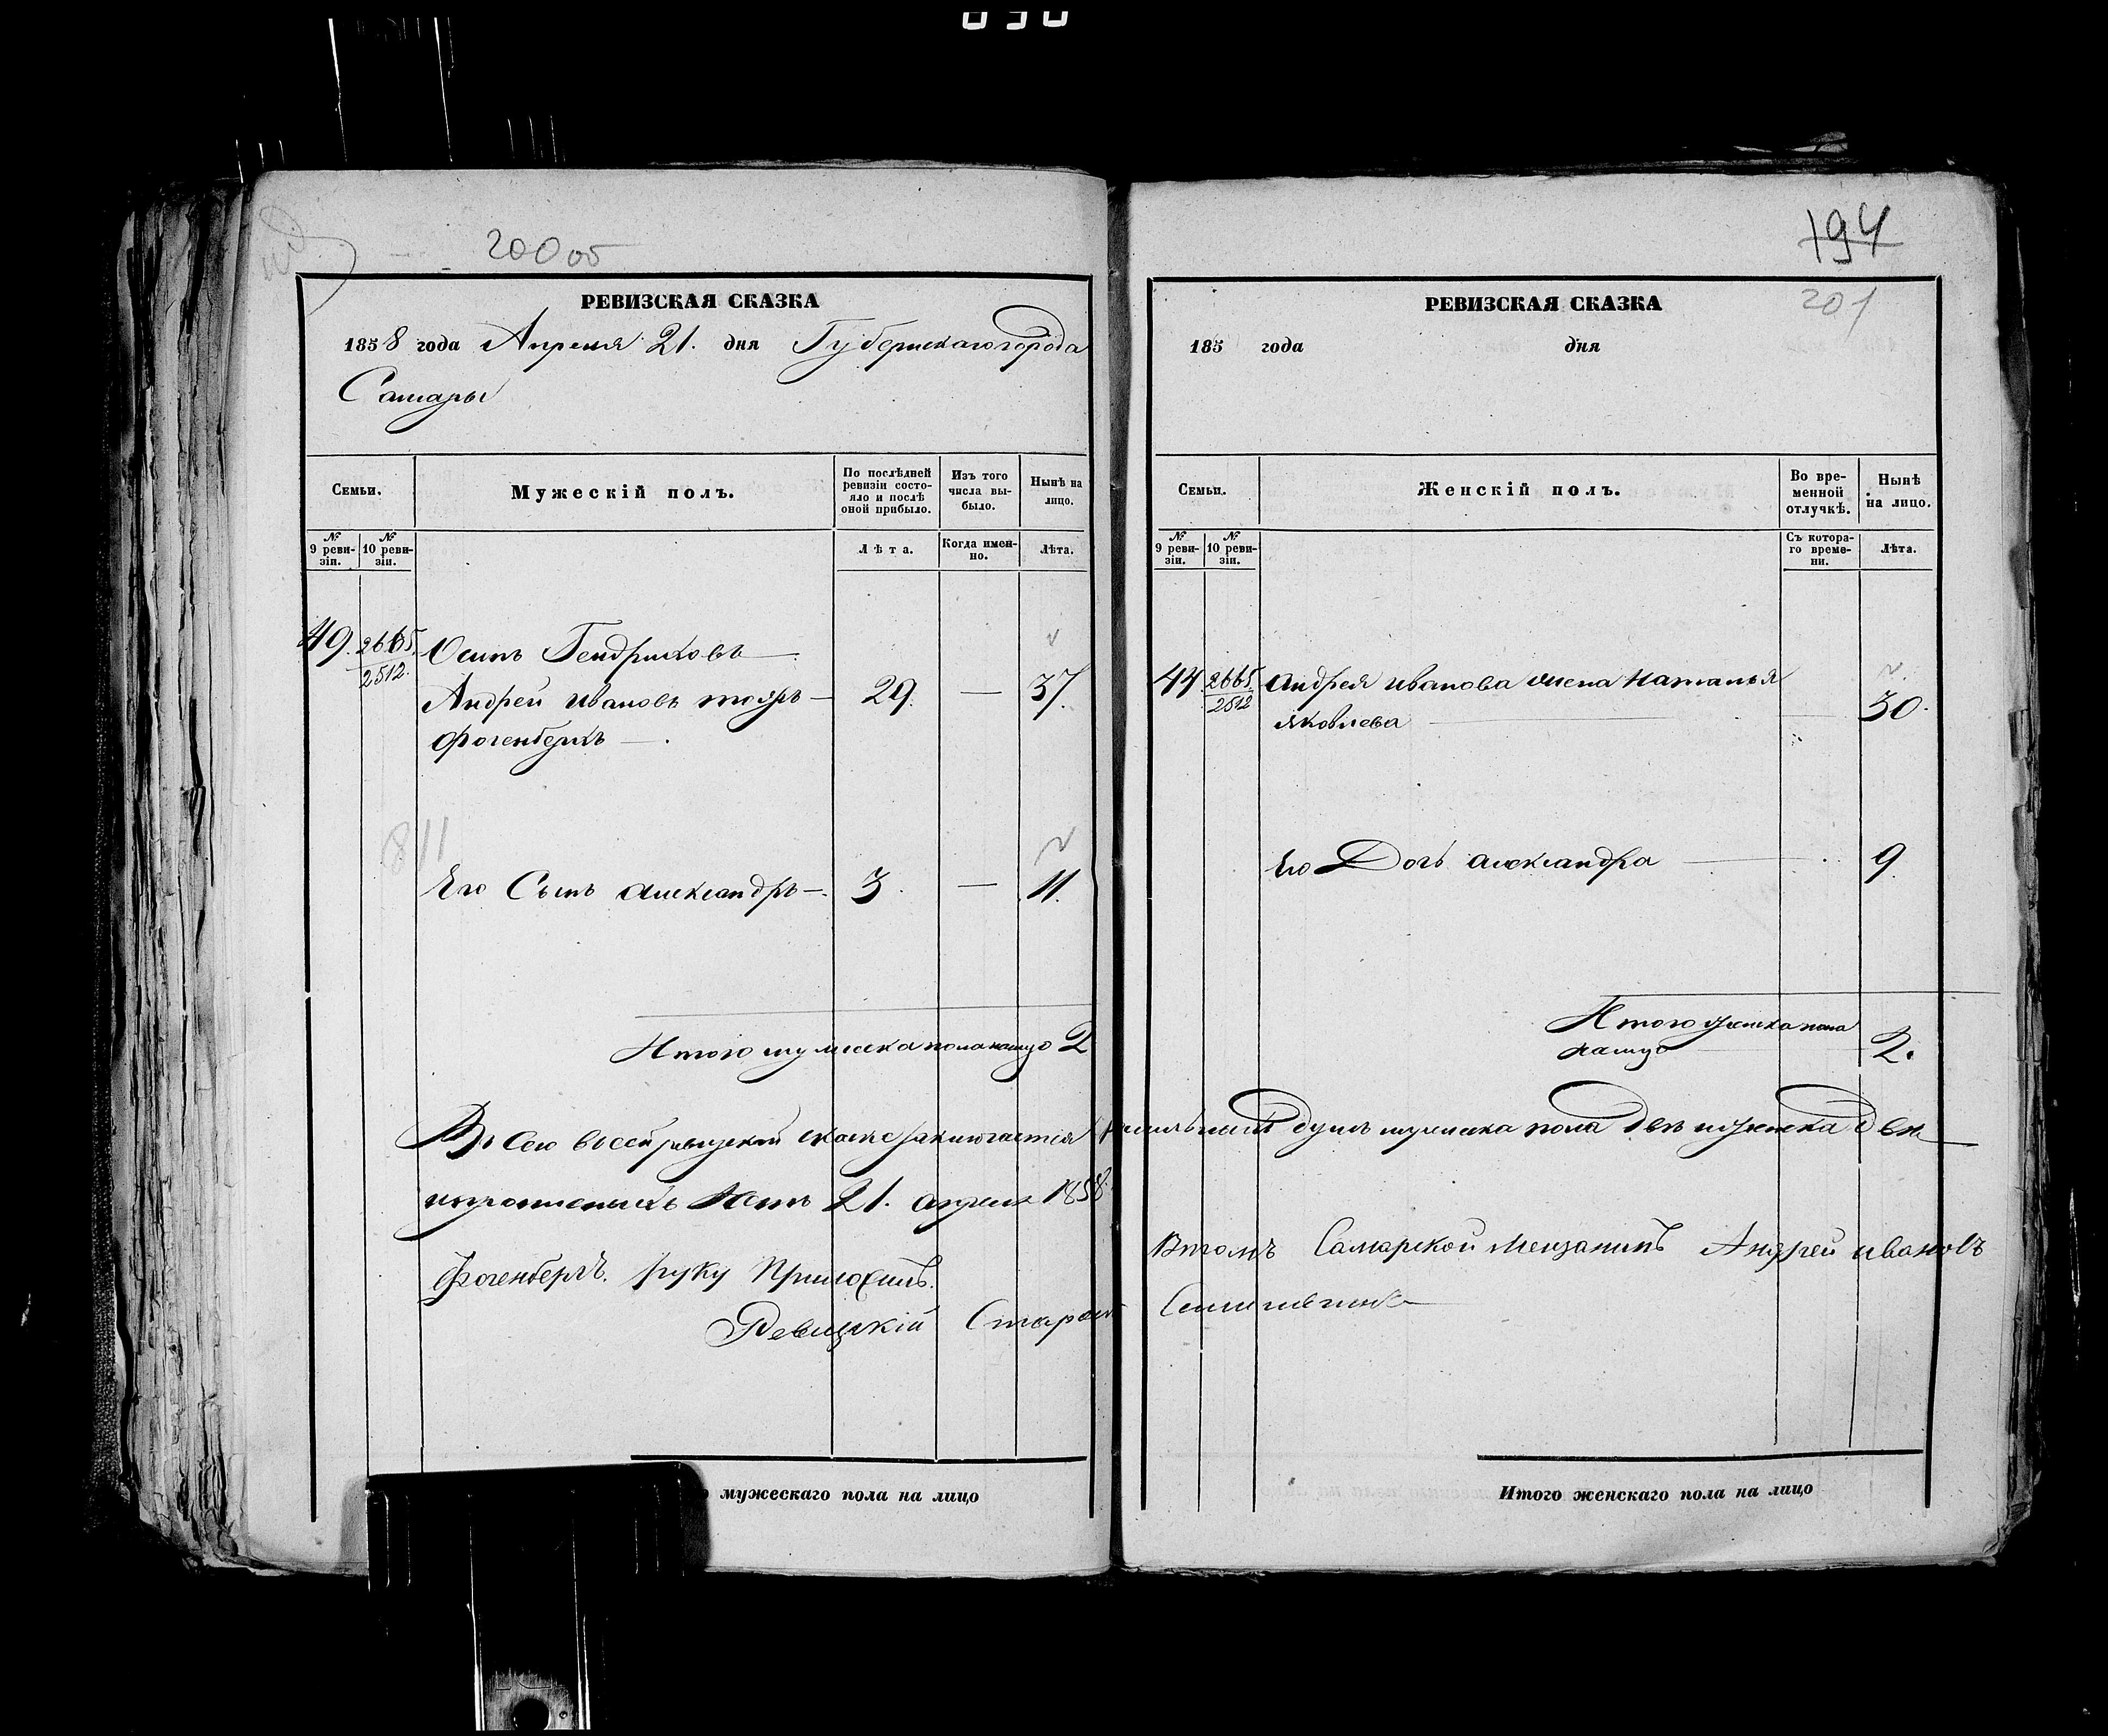 200 об
РЕВИЗСКАЯ СКАЗКА
1858 года Апреля 21. дня Губернскаго города
Самары
Семьи.
Мужескій полъ.
По послѣдней ревизіи состояло и послѣ оной прибыло.
Изъ того числа выбыло.
Нынѣ на лицо.
№ 9 ревизіи.
№ 10 ревизіи.
Лѣта.
Когда именно.
Лѣта.
49. 2665. Осипъ Гендриховъ
2512. Андрей Ивановъ 29. — 37.
Фогенбергъ
811
Его Сынъ Александръ 3. — 11.
Итого мужеска пола налицо 2
194
РЕВИЗСКАЯ СКАЗКА
201
185 года дня
Семьи.
Женскій полъ.
Во временной отлучкѣ.
Нынѣ на лицо.
№ 9 ревизіи.
№ 10 ревизіи.
Съ котораго времени.
Лѣта.
2665. Андрея Иванова жена Наталья
2512 Яковлева 30.
Его Дочь Александра 9.
Итого женска пола
налицо 2.
Въ сей ревизской сказке заключается душъ мужеска пола две и женска две
21. апреля 1858 Въ томъ Самарской Мещанинъ Андрей Ивановъ
Фогенбергъ. руку Приложилъ.
Ревизкій Староста
мужескаго пола на лицо
Итого женскаго пола на лицо